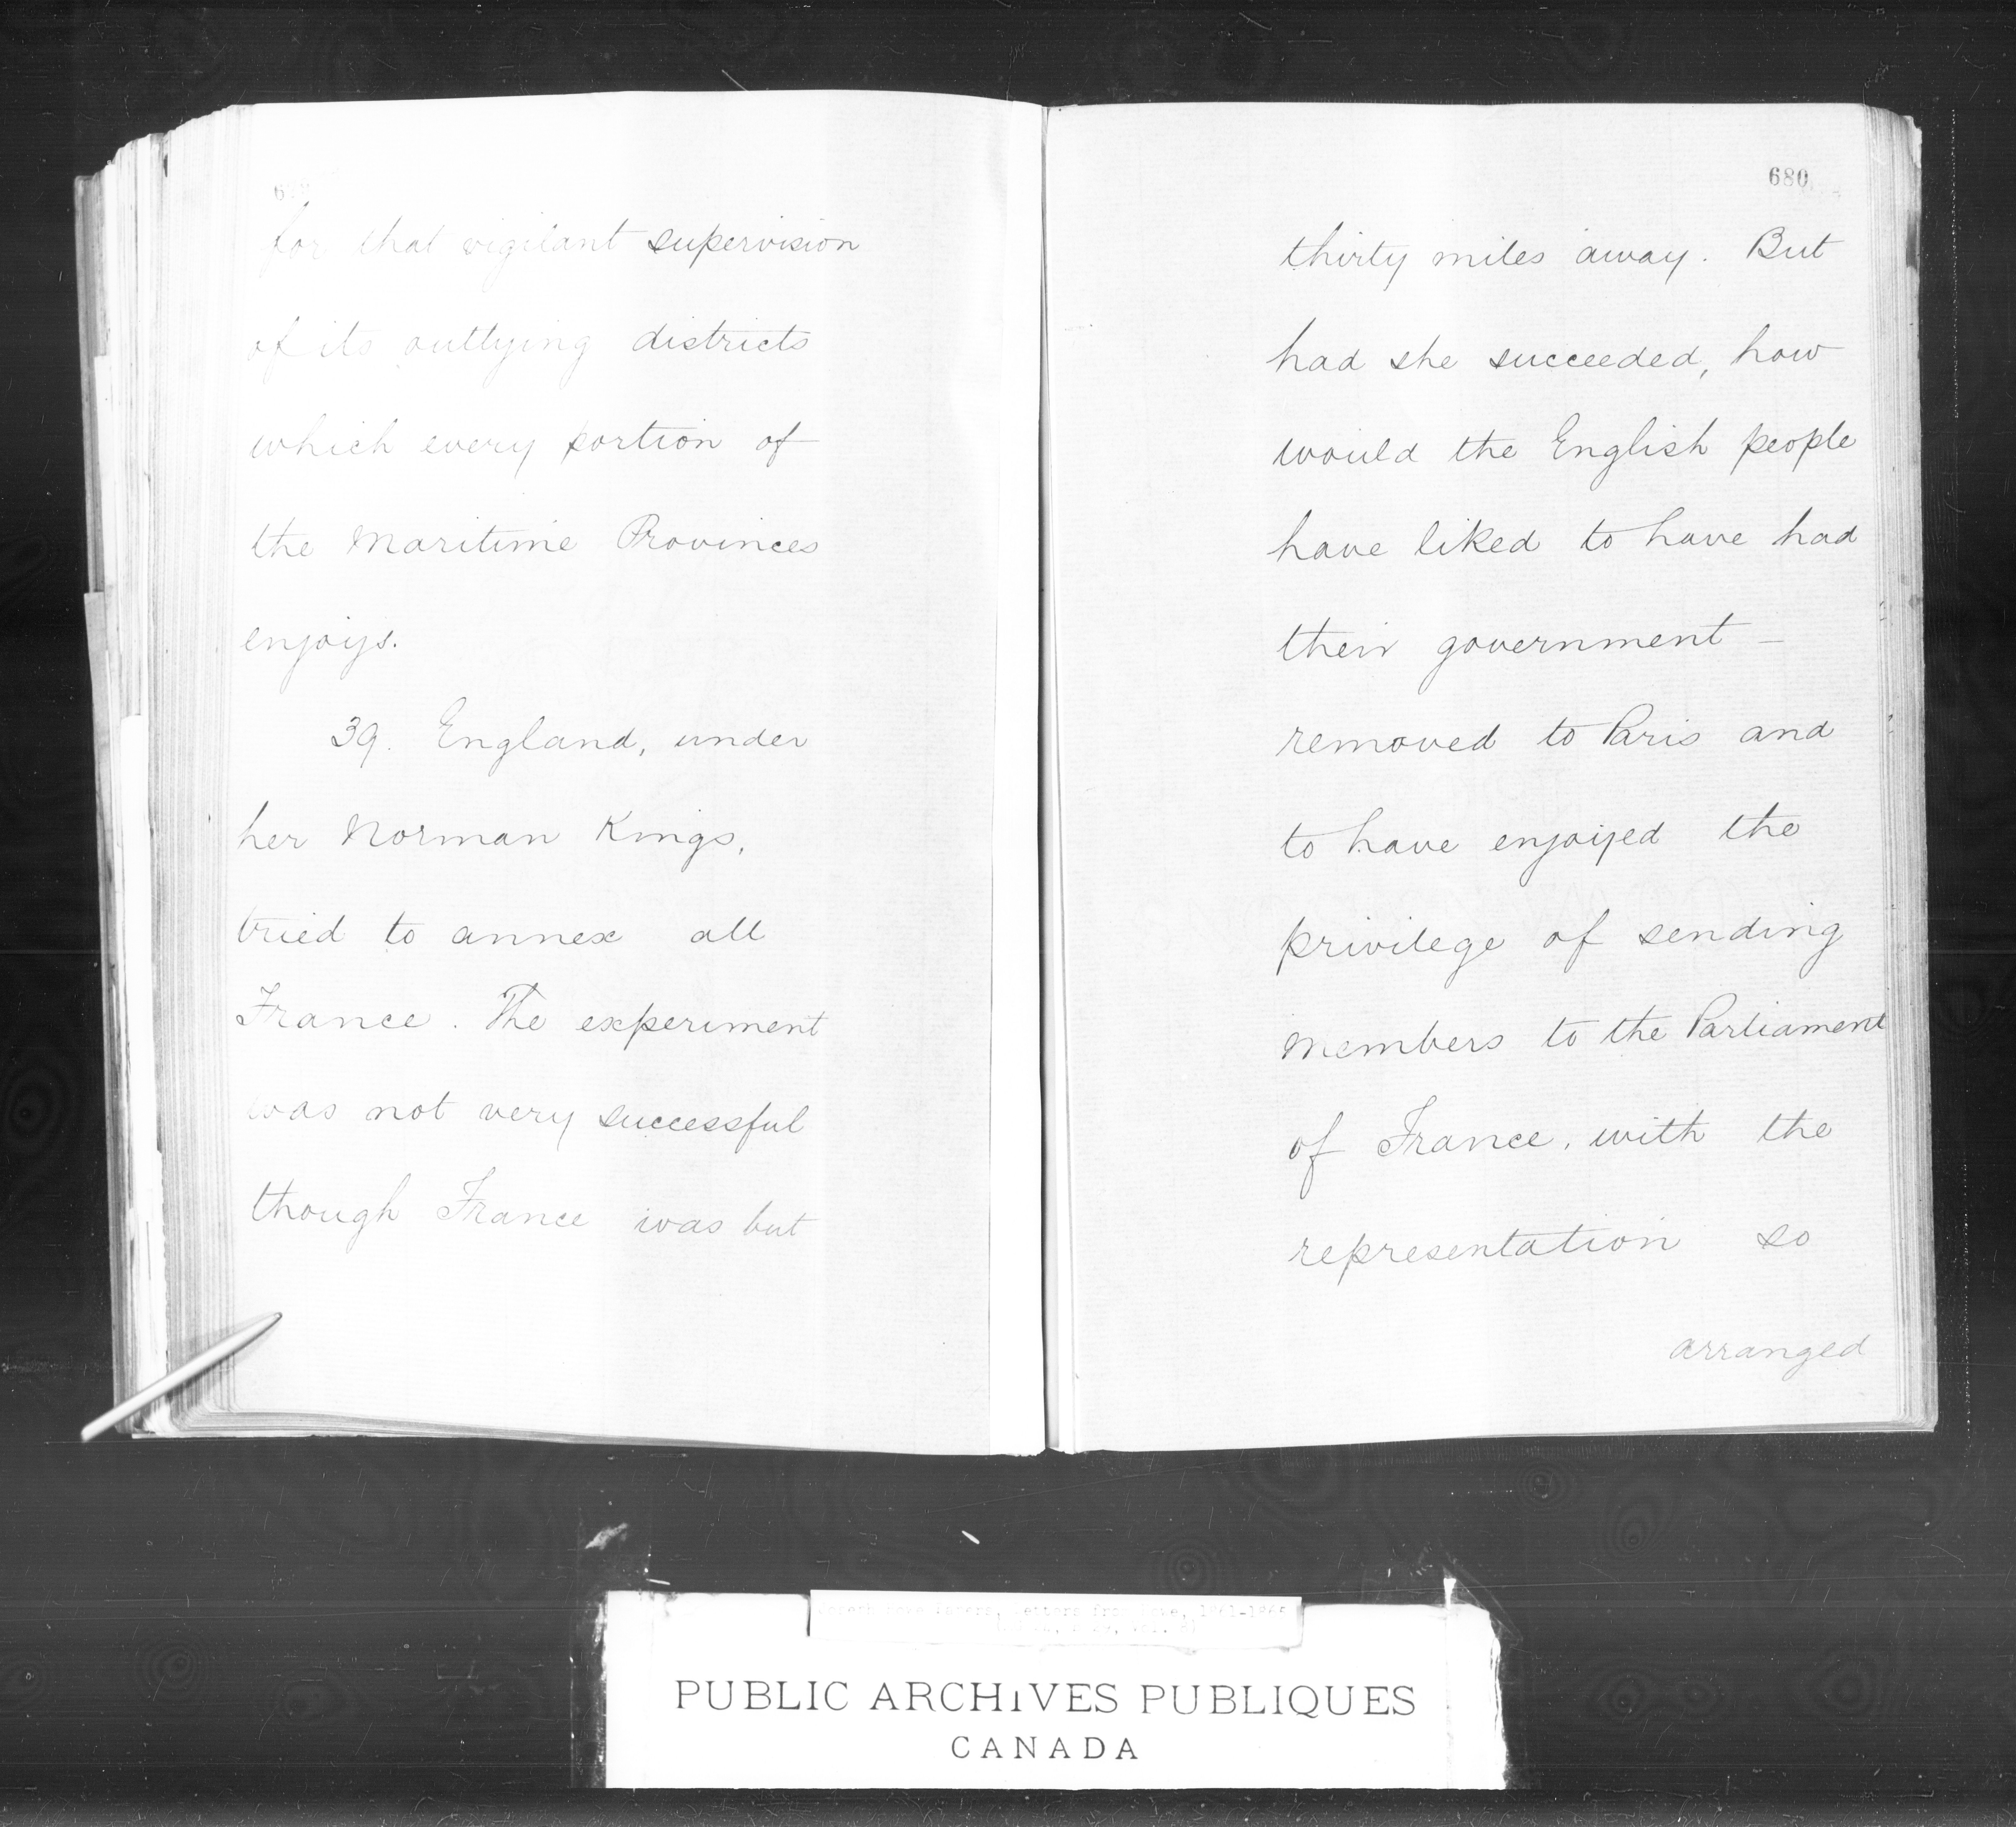 for that vigilant supervision
of its outlying districts
which every portion of
the Maritime Provinces
enjoys.
39. England, under
her Norman Kings,
tried to annex all
France. The experiment
was not very successful
though France was but
680
thirty miles away. But
had she succeeded, how
would the English people
have liked to have had
their government –
removed to Paris and
to have enjoyed the
privilege of sending
members to the Parliament
of France, with the
representation so
arranged
Joseph Howe Papers, Letters from Howe, 1861-
PUBLIC ARCHIVES PUBLIQUES
CANADA